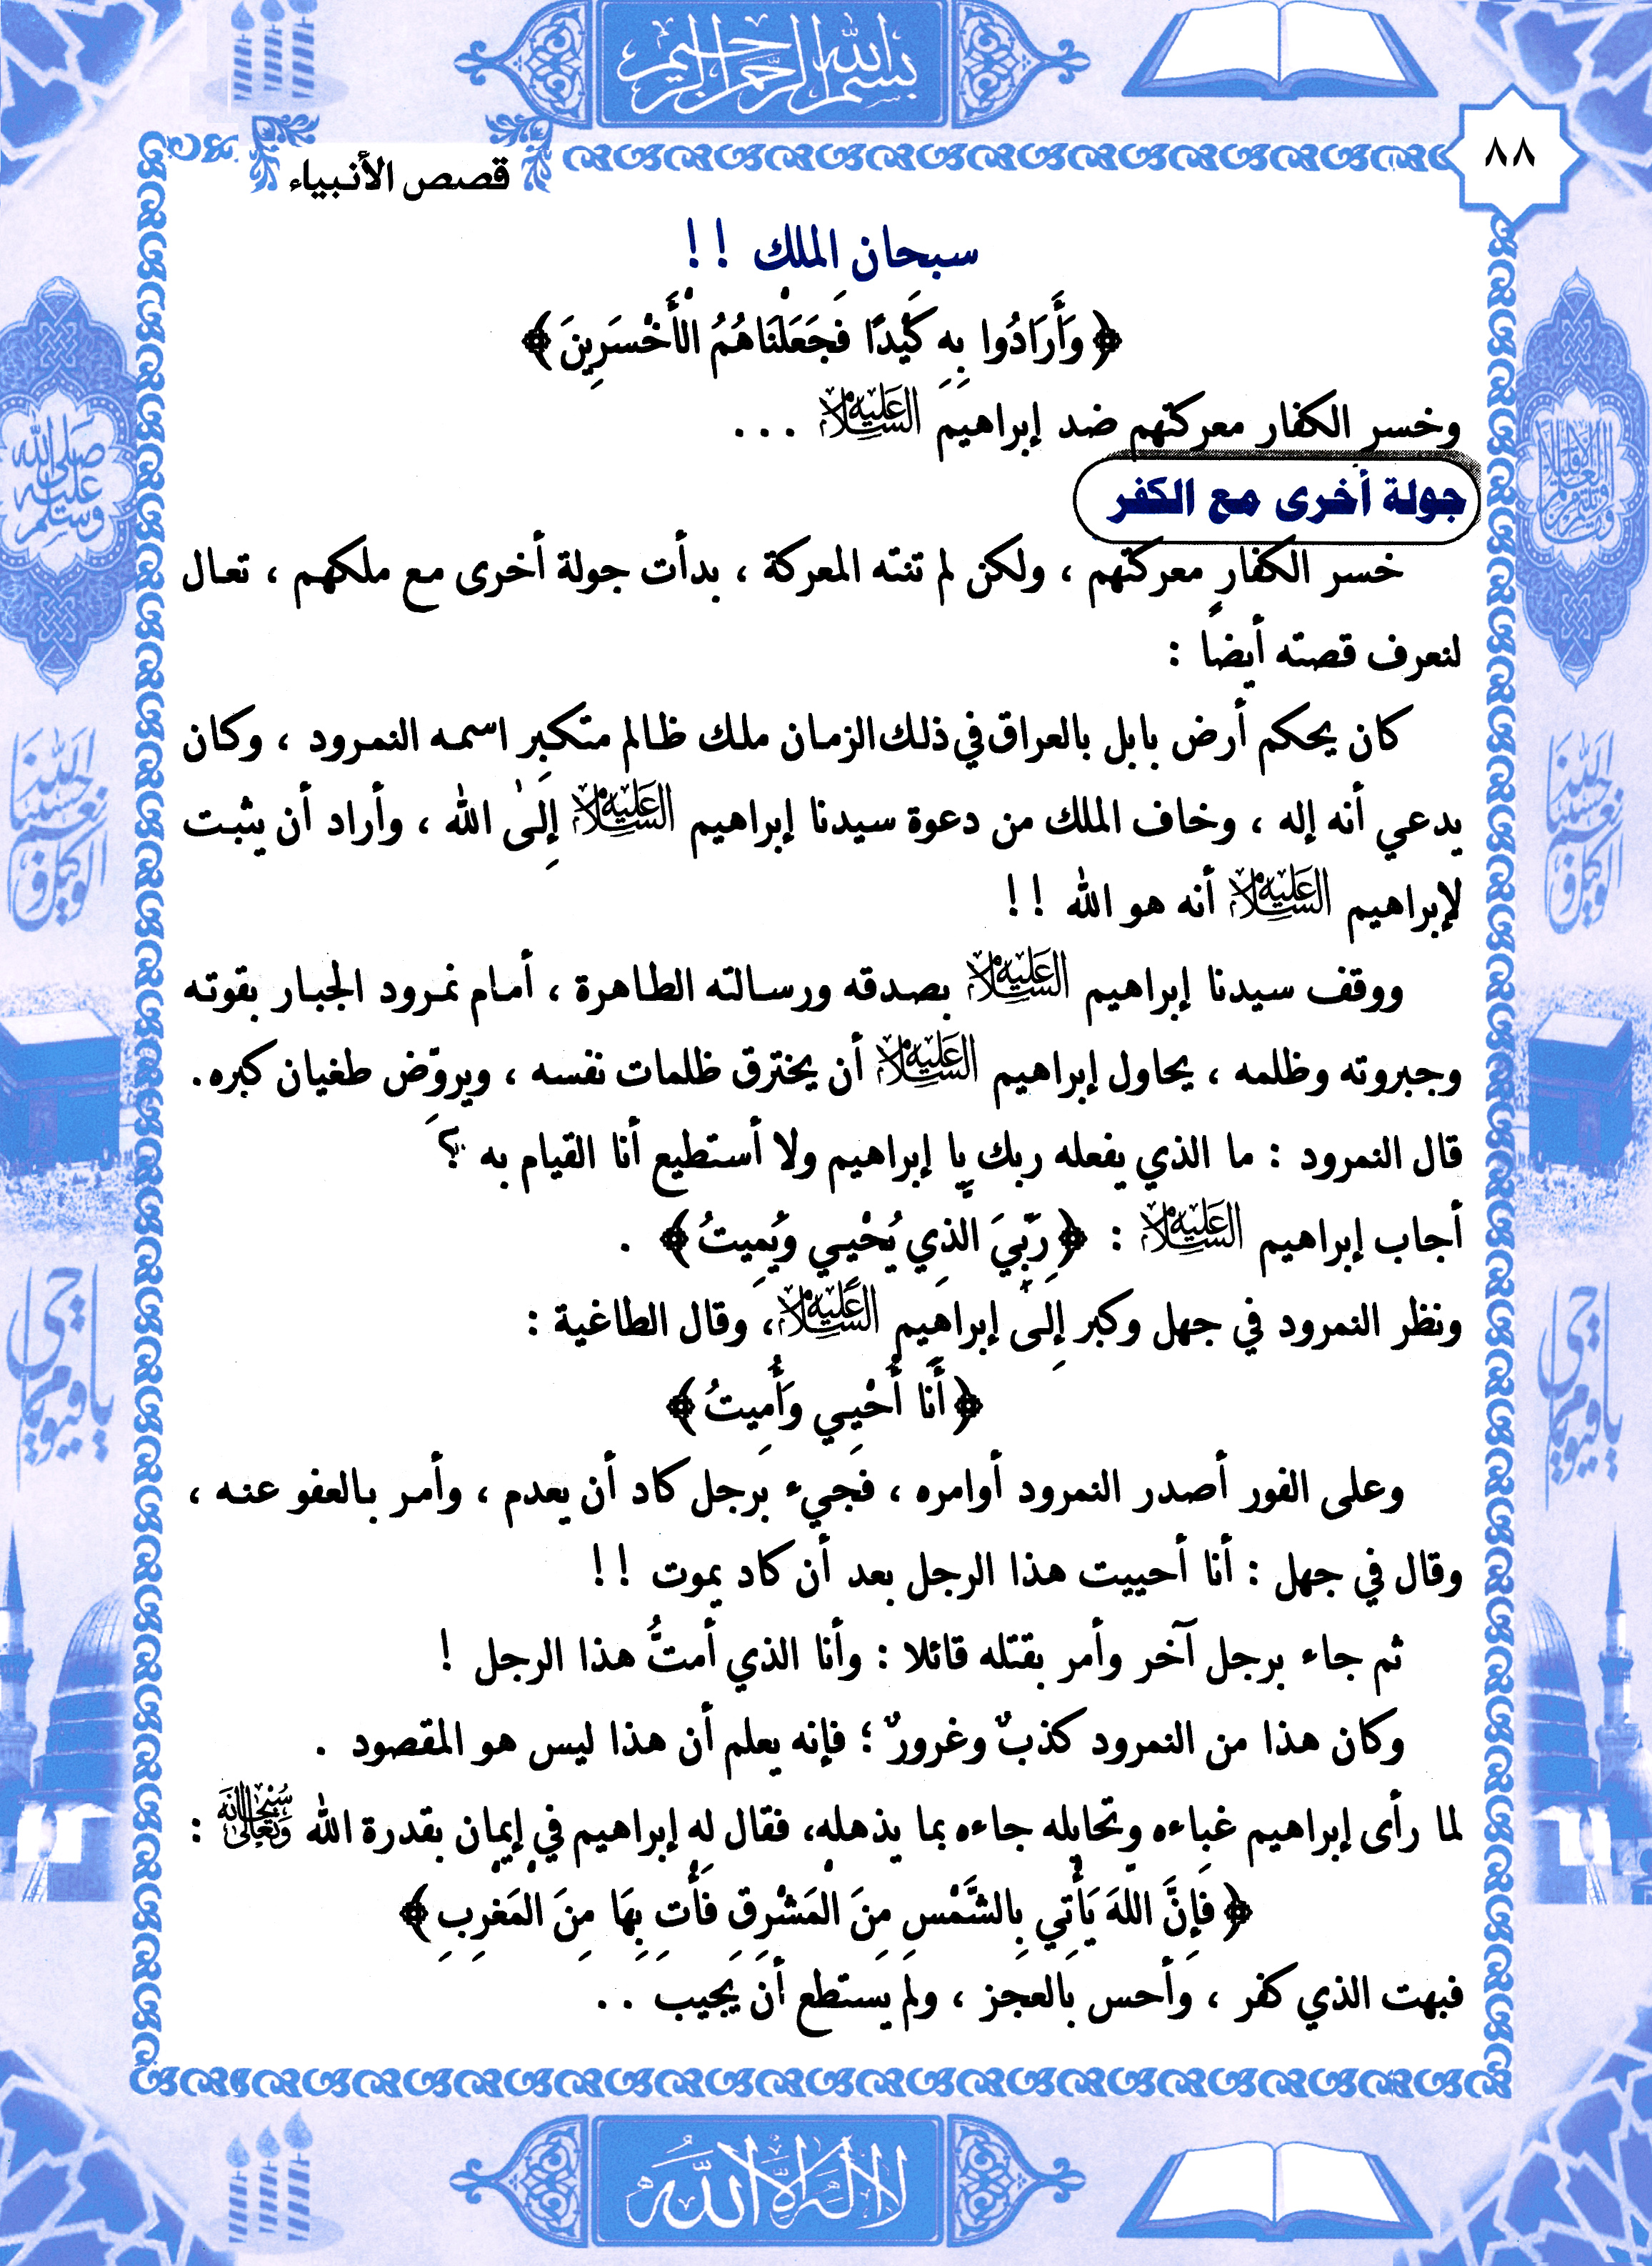 بسم الله الرحمن الرحيم
٨٨
قصص الأنبياء
سبحان الملك !!
﴿وَأَرَادُوا بِهِ كَيْدًا فَجَعَلْنَاهُمُ الْأَخْسَرِينَ﴾
وخسر الكفار معركتهم ضد إبراهيم عليه السلام ...
جولة أخرى مع الكفر
خسر الكفار معركتهم ، ولكن لم تنته المعركة ، بدأت جولة أخرى مع ملكهم ، تعال
لنعرف قصته أيضًا :
كان يحكم أرض بابل بالعراق في ذلك الزمان ملك ظالم متكبر اسمه النمرود ، وكان
يدعي أنه إله ، وخاف الملك من دعوة سيدنا إبراهيم عليه السلام إِلَىٰ الله ، وأراد أن يثبت
لإبراهيم عليه السلام أنه هو الله !!
ووقف سيدنا إبراهيم عليه السلام بصدقه ورسالته الطاهرة ، أمام نمرود الجبار بقوته
وجبروته وظلمه ، يحاول إبراهيم عليه السلام أن يخترق ظلمات نفسه ، ويروّض طغيان كبره.
قال النمرود : ما الذي يفعله ربك يا إبراهيم ولا أستطيع أنا القيام به ؟
أجاب إبراهيم عليه السلام : ﴿رَبِّيَ الَّذِي يُحْيِي وَيُمِيتُ﴾ .
ونظر النمرود في جهل وكبر إِلَىٰ إبراهيم عليه السلام، وقال الطاغية :
﴿أَنَا أُحْيِي وَأُمِيتُ﴾
وعلى الفور أصدر النمرود أوامره ، فجيء برجل كاد أن يعدم ، وأمر بالعفو عنه ،
وقال في جهل : أنا أحييت هذا الرجل بعد أن كاد يموت !!
ثم جاء برجل آخر وأمر بقتله قائلا : وأنا الذي أمتُّ هذا الرجل !
وكان هذا من النمرود كذبٌ وغرورٌ ؛ فإنه يعلم أن هذا ليس هو المقصود .
لما رأى إبراهيم غباءه وتحايله جاءه بما يذهله، فقال له إبراهيم في إيمان بقدرة الله سبحانه وتعالى :
﴿فَإِنَّ اللَّهَ يَأْتِي بِالشَّمْسِ مِنَ الْمَشْرِقِ فَأْتِ بِهَا مِنَ الْمَغْرِبِ﴾
فبهت الذي كفر ، وأحس بالعجز ، ولم يستطع أن يجيب ..
لا إله إلا الله
صلى الله عليه وسلم
حسبنا الله ونعم الوكيل
حسبنا الله ونعم الوكيل
يا حي يا قيوم
يا حي يا قيوم